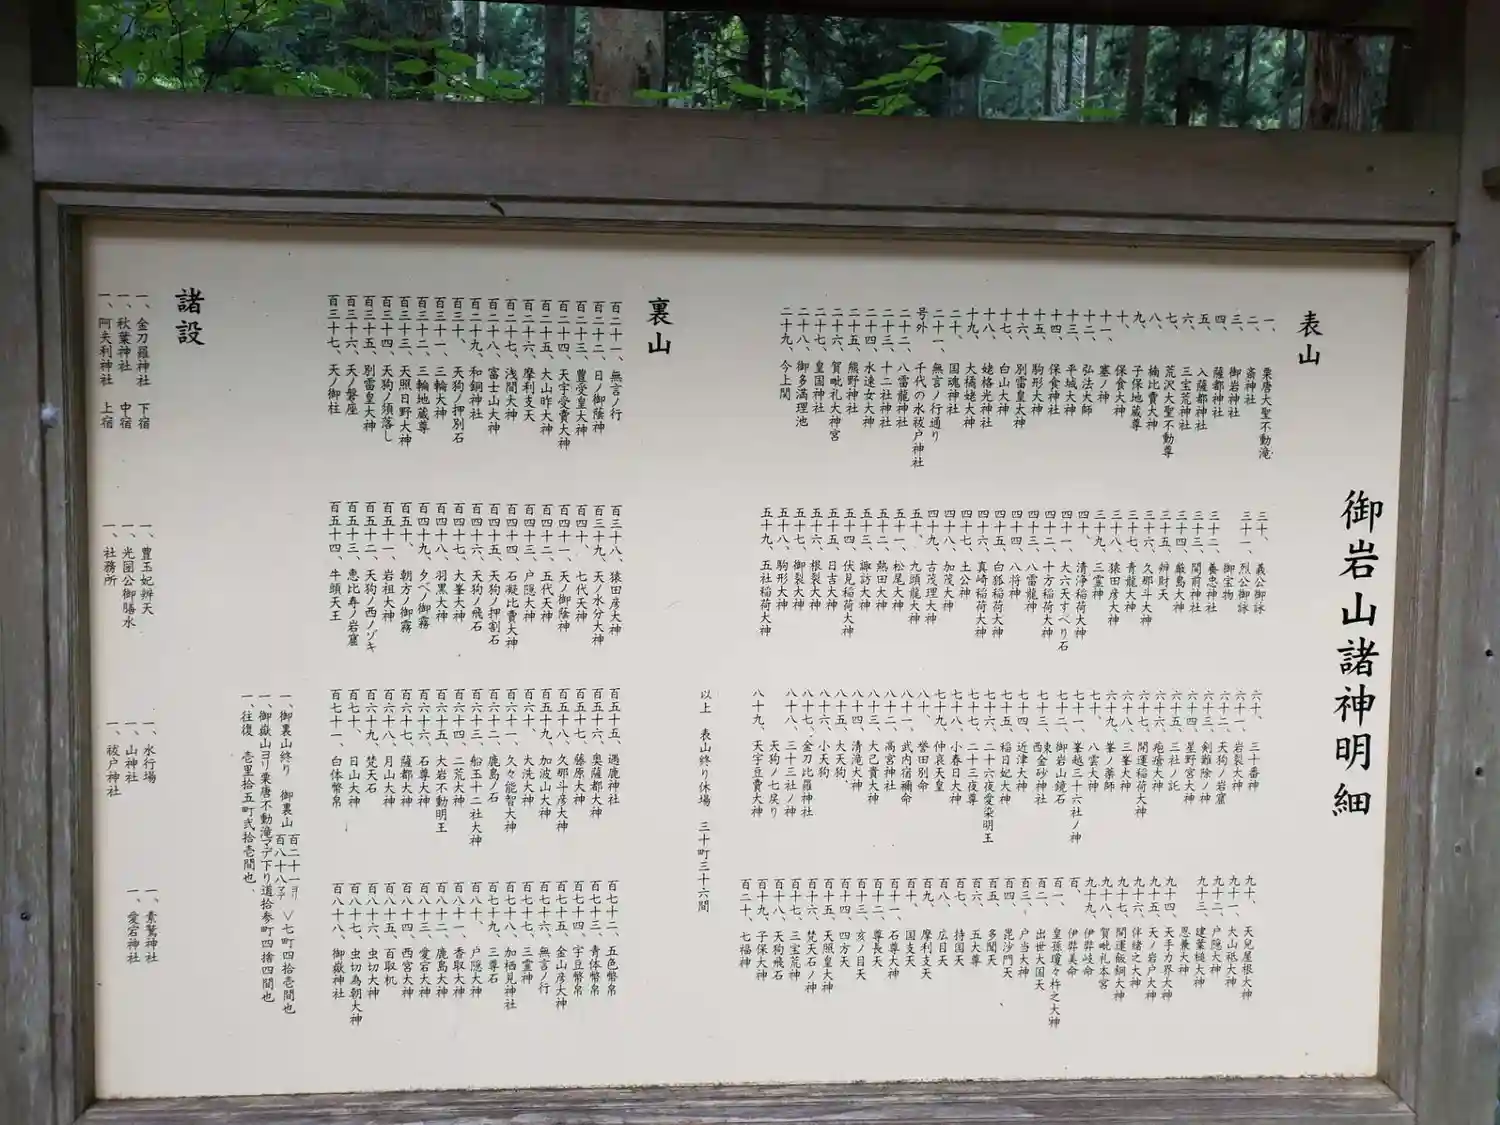 御岩山諸神明細
表山
一、 栗唐大聖不動滝
二、 斎神社
三、 御岩神社
四、 薩都神社
五、 入薩都神社
六、 三宝荒神社
七、 荒沢大聖不動尊
八、 楠比賣大神
九、 子保地蔵尊
十、 保食大神
十一、 塞ノ神
十二、 弘法大師
十三、 平城大神
十四、 保食神社
十五、 駒形大神
十六、 別雷皇大神
十七、 白山大神
十八、 姥格光神社
十九、 大橘姥大神
二十、 国魂神社
二十一、 無言ノ行通り
号外 千代の水祓戸神社
二十二、 八雷龍神社
二十三、 十二社神社
二十四、 水速女大神
二十五、 熊野神社
二十六、 賀毗礼大神宮
二十七、 皇国神社
二十八、 御多満理池
二十九、 今上間
三十、 義公御詠
三十一、 烈公御詠
御宝物
三十二、 養忠神社
三十三、 間前神社
三十四、 厳島大神
三十五、 辨財天
三十六、 久那斗大神
三十七、 青龍大神
三十八、 猿田彦大神
三十九、 三霊神
四十、 清浄稲荷大神
四十一、 大六天すべり石
四十二、 十方稲荷大神
四十三、 八雷龍神
四十四、 八将神
四十五、 白狐稲荷大神
四十六、 真崎稲荷大神
四十七、 土公神
四十八、 加茂大神
四十九、 古茂理大神
五十、 九頭龍大神
五十一、 松尾大神
五十二、 熱田大神
五十三、 諏訪大神
五十四、 伏見稲荷大神
五十五、 日吉大神
五十六、 根裂大神
五十七、 御裂大神
五十八、 駒形大神
五十九、 五社稲荷大神
六十、 三十番神
六十一、 岩裂大神
六十二、 天狗ノ岩窟
六十三、 剣難除ノ神
六十四、 星野宮大神
六十五、 三社ノ託
六十六、 疱瘡大神
六十七、 開運稲荷大神
六十八、 三峯大神
六十九、 峯ノ薬師
七十、 八雲大神
七十一、 峯越三十六社ノ神
七十二、 御岩山鏡石
七十三、 東金砂神社
西金砂神社
七十四、 近津大神
七十五、 稲日妃大神
七十六、 二十六夜愛染明王
七十七、 二十三夜尊
七十八、 小春日大神
七十九、 仲哀天皇
八十、 譽田別命
八十一、 武内宿禰命
八十二、 高宮神社
八十三、 大己貴大神
八十四、 清滝大神
八十五、 大天狗
八十六、 小天狗
八十七、 金刀比羅神社
八十八、 三十三社ノ神
天狗ノ七戻り
八十九、 天宇豆賣大神
九十、 天兒屋根大神
九十一、 大山祇大神
九十二、 戸隠大神
九十三、 建葉槌大神
恩兼大神
九十四、 天手力界大神
九十五、 天ノ岩戸大神
九十六、 伴緒之大神
九十七、 開運飯綱大神
九十八、 賀毗礼本宮
九十九、 伊弉岐命
百、 伊弉美命
百一、 皇孫瓊々杵之大神
百二、 出世大国天
百三、 戸当大神
百四、 毘沙門天
百五、 多聞天
百六、 五大尊
百七、 持国天
百八、 広目天
百九、 摩利支天
百十、 国支天
百十一、 石尊大神
百十二、 尊長天
百十三、 亥ノ目天
百十四、 四方天
百十五、 天照皇大神
百十六、 梵天石ノ神
百十七、 三宝荒神
百十八、 天狗飛石
百十九、 子保大神
百二十、 七福神
以上 表山終り休場 三十町三十六間
裏山
百二十一、 無言ノ行
百二十二、 日ノ御蔭神
百二十三、 豊受皇大神
百二十四、 天宇受賣大神
百二十五、 大山昨大神
百二十六、 摩利支天
百二十七、 浅間大神
百二十八、 富士山大神
百二十九、 和銅神社
百三十、 天狗ノ押別石
百三十一、 三輪大神
百三十二、 三輪地蔵尊
百三十三、 天照日野大神
百三十四、 天狗ノ須落し
百三十五、 別雷皇大神
百三十六、 天ノ磐座
百三十七、 天ノ御柱
百三十八、 猿田彦大神
百三十九、 天ノ水分大神
百四十、 七代天神
百四十一、 天ノ御蔭神
百四十二、 五代天神
百四十三、 戸隠大神
百四十四、 石凝比賣大神
百四十五、 天狗ノ押割石
百四十六、 天狗ノ飛石
百四十七、 大峯大神
百四十八、 羽黒大神
百四十九、 夕べノ御霧
百五十、 朝方ノ御霧
百五十一、 岩祖大神
百五十二、 天狗ノ西ノゾキ
百五十三、 恵比寿ノ岩窟
百五十四、 牛頭天王
百五十五、 過鹿神社
百五十六、 奥薩都大神
百五十七、 藤原大神
百五十八、 久那斗彦大神
百五十九、 加波山大神
百六十、 大洗大神
百六十一、 久々能智大神
百六十二、 鹿島ノ石
百六十三、 船玉十二社大神
百六十四、 二荒大神
百六十五、 大岩不動明王
百六十六、 石尊大神
百六十七、 薩都大神
百六十八、 月山大神
百六十九、 梵天石
百七十、 日山大神
百七十一、 白体幣帛
百七十二、 五色幣帛
百七十三、 青体幣帛
百七十四、 宇豆幣帛
百七十五、 金山彦大神
百七十六、 無言ノ行
百七十七、 三霊神
百七十八、 加栖見神社
百七十九、 三尊石
百八十、 戸隠大神
百八十一、 香取大神
百八十二、 鹿島大神
百八十三、 愛宕大神
百八十四、 西宮大神
百八十五、 百取机
百八十六、 虫切大神
百八十七、 虫切為朝大神
百八十八、 御嶽神社
一、 御裏山終り 御裏山 百二十一ヨリ百八十八マデ ∨七町四拾壱間也
一、 御嶽山ヨリ栗唐不動滝マデ下り道拾参町四捨四間也
一、 往復 壱里拾五町弐拾壱間也
諸設
一、 金刀羅神社 下宿
一、 秋葉神社 中宿
一、 阿夫利神社 上宿
一、 豊玉妃辨天
一、 光圀公御膳水
一、 社務所
一、 水行場
一、 山神社
一、 祓戸神社
一、 素鵞神社
一、 愛宕神社